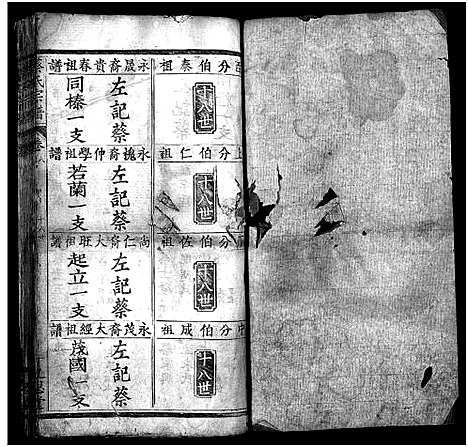 分伯泰祖
十八世
永晟裔貴春祖譜
左記蔡
同榛一支
分伯仁祖
十八世
永槐裔仲學祖譜
左記蔡
若蘭一支
分伯佐祖
十八世
尚仁裔大旺祖譜
左記蔡
起立一支
分伯成祖
十八世
永茂裔大經祖譜
左記蔡
茂國一支